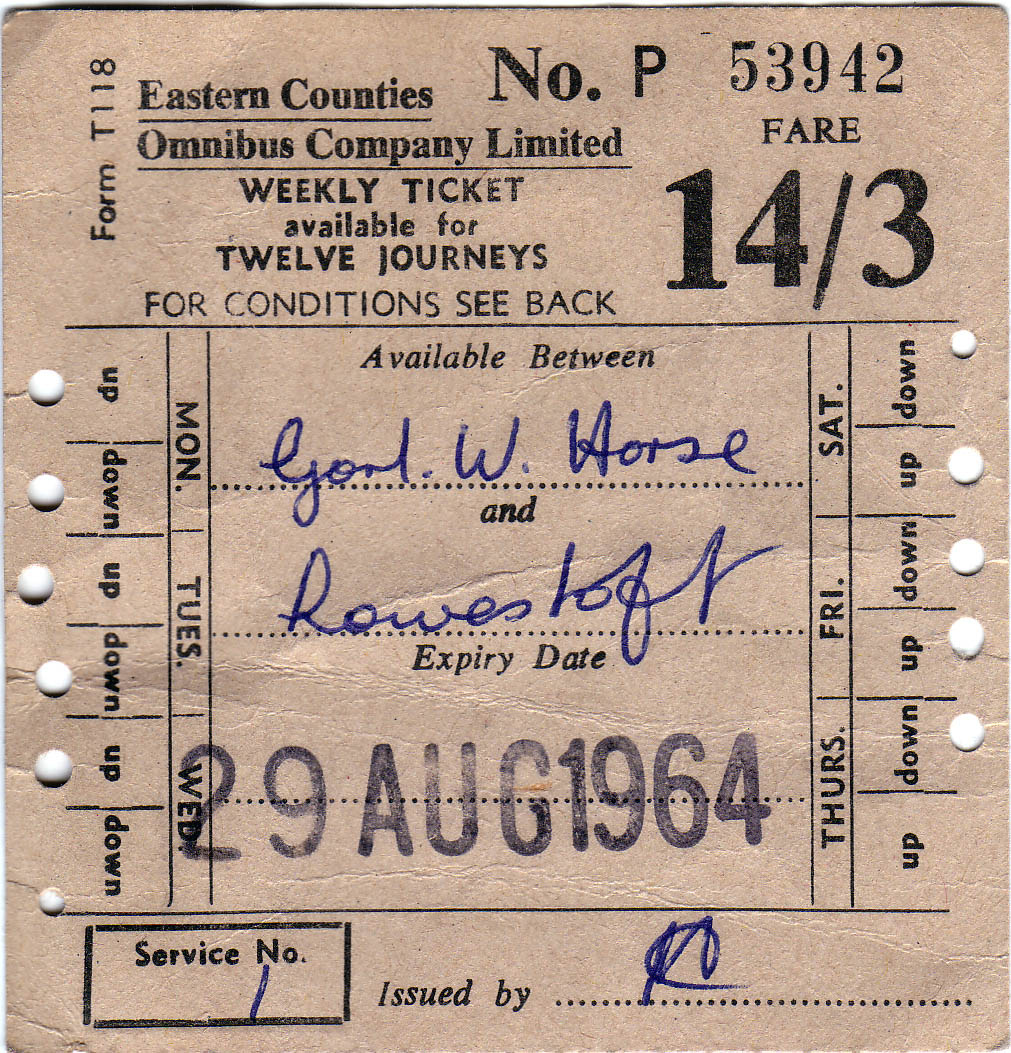 Form T118
Eastern Counties
Omnibus Company Limited
No. P 53942
WEEKLY TICKET
available for
TWELVE JOURNEYS
FOR CONDITIONS SEE BACK
FARE
14/3
Available Between
Gorl. W. Horse
and
Lowestoft
Expiry Date
29 AUG 1964
MON.
TUES.
WED.
up
down
up
down
up
down
SAT.
FRI.
THURS.
down
up
down
up
down
up
Service No.
1
Issued by